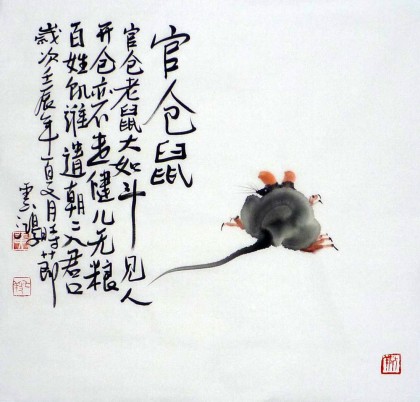 官仓鼠
官仓老鼠大如斗见人
开仓亦不走健儿无粮
百姓饥谁遣朝〻入君口
歲次壬辰年夏月時節